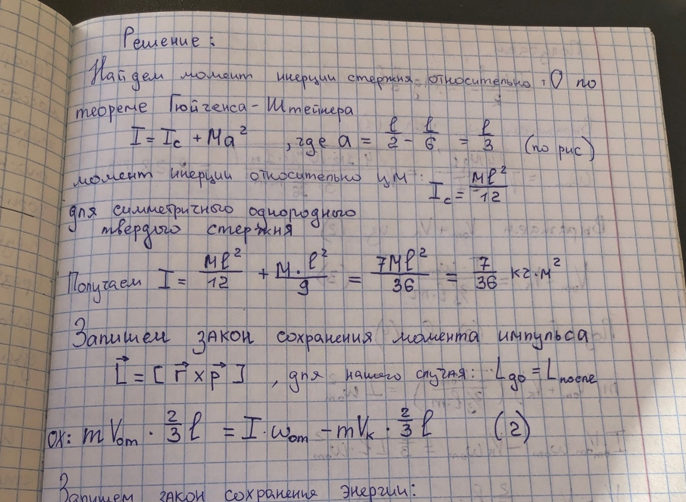 Решение:
Найдем момент инерции стержня относительно O по
теореме Гюйгенса-Штейнера
I = I_c + Ma², где a = l/2 - l/6 = l/3 (по рис)
момент инерции относительно ЦМ: I_c = Ml²/12
для симметричного однородного
твердого стержня
Получаем I = Ml²/12 + M·l²/9 = 7Ml²/36 = 7/36 кг·м²
Запишем закон сохранения момента импульса
L⃗ = [r⃗ × p⃗], для нашего случая: L_до = L_после
ox: mV_om · 2/3 l = I·ω_om - mV_k · 2/3 l (2)
Запишем закон сохранения энергии: